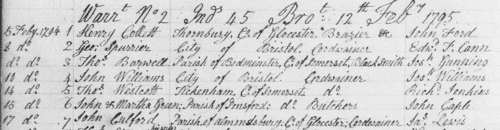 Warrt. No 2 Ind 45 Brot. 12th Feby 1795
5 Feby. 1794 1 Henry Collett Thornbury, Co. of Glocester Brazier &c John Ford
8 do 2 Geo. Spurrier City of Bristol Cordwainer Edwd. T. Cann
do do 3 Thos. Barwell Parish of Bedminster, Co. of Somerset, Black Smith Jos. Gunning
10 do 4 John Williams City of Bristol Cordwainer Jos. Williams
14 do 5 Thos. Westcott Tickenham, Co. of Somerset, do Richd. Jenkins
15 do 6 John & Martha Green, Parish of do Butchers John Caple
17 do 7 John Parish of Almondsbury, Co. of Glocester, Cordwainer Jas. Lewis